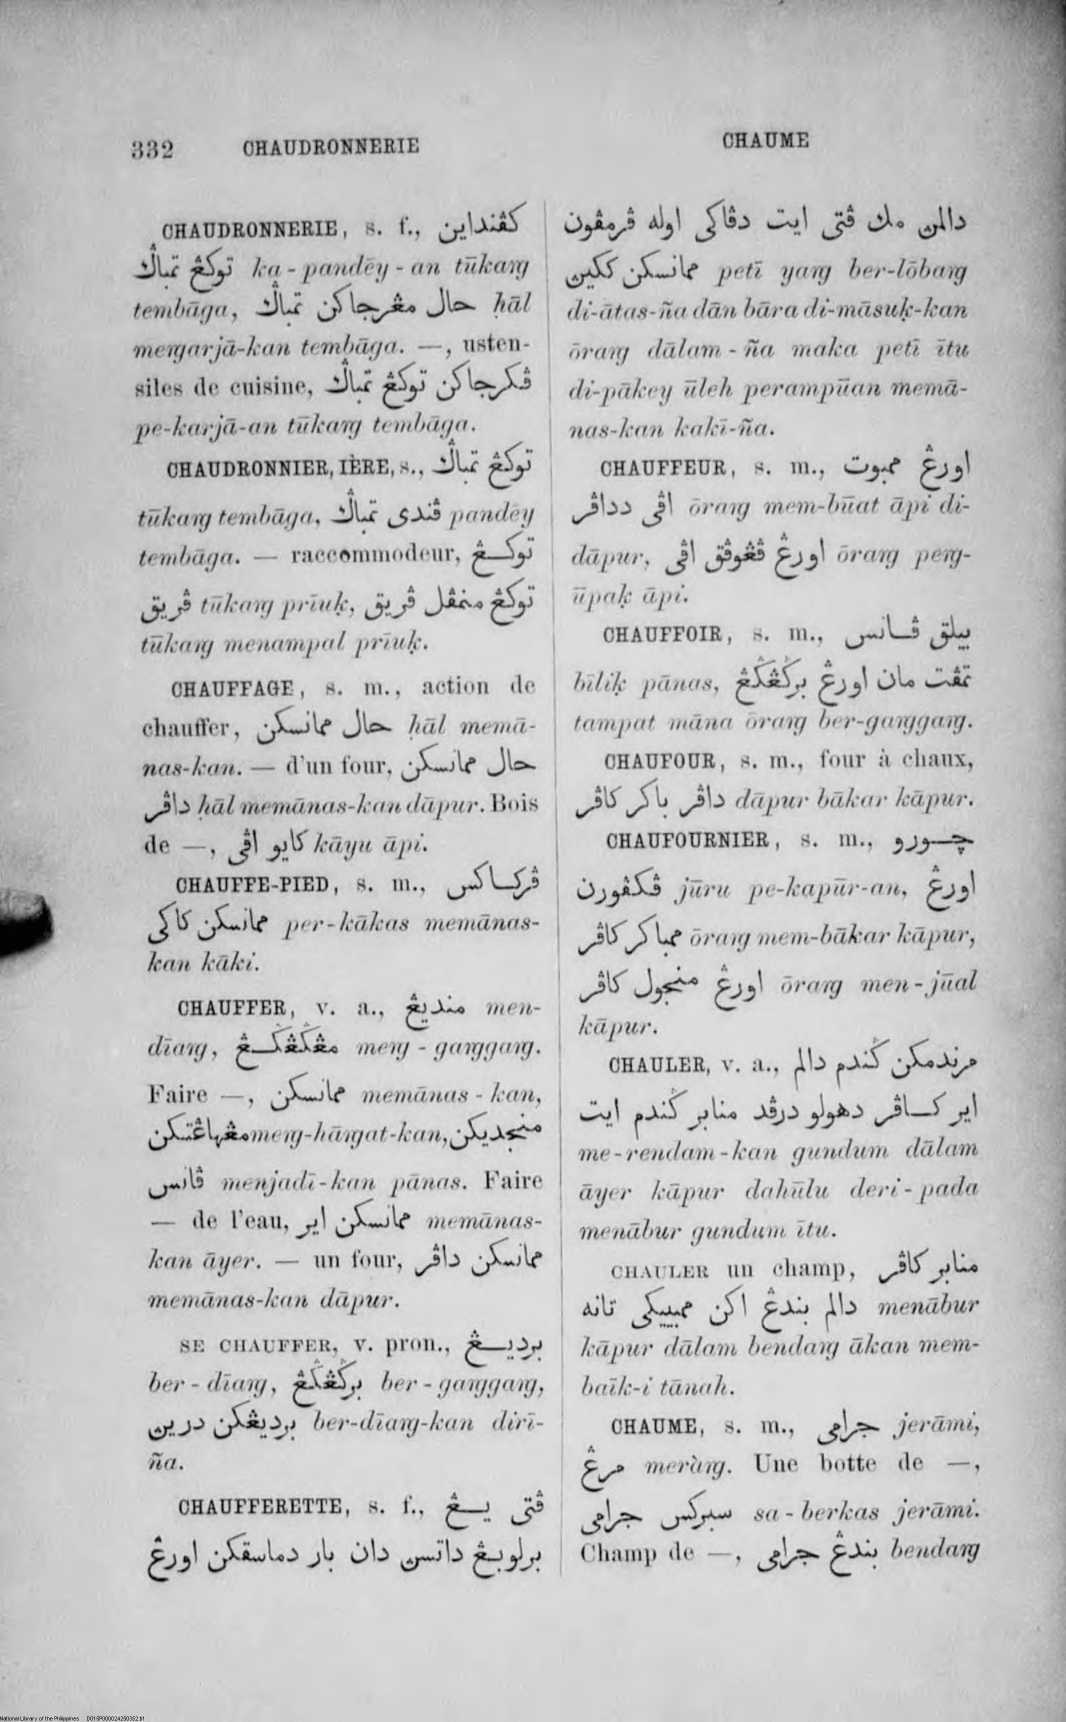 332 CHAUDRONNERIE CHAUME
CHAUDRONNERIE, s. f., كڤنداين
توكڠ تمباݢ ka-pandēy-an tūkaŋg
tembāga, حال مڠرجاكن تمباݢ ḥāl
meŋgarjā-kan tembāga. —, usten-
siles de cuisine, ڤكرجاكن توكڠ تمباݢ
pe-karjā-an tūkaŋg tembāga.
CHAUDRONNIER, IÈRE, s., توكڠ تمباݢ
tūkaŋg tembāga, ڤندى تمباݢ pandēy
tembāga. — raccommodeur, توكڠ
ڤريق tūkaŋg prīuḳ, توكڠ منمڤل ڤريق
tūkaŋg menampal prīuḳ.
CHAUFFAGE, s. m., action de
chauffer, حال ممانسكن ḥāl memā-
nas-kan. — d'un four, حال ممانسكن
داڤر ḥāl memānas-kan dāpur. Bois
de —, كايو اڤى kāyu āpi.
CHAUFFE-PIED, s. m., ڤركاكس
ممانسكن كاكى per-kākas memānas-
kan kāki.
CHAUFFER, v. a., منديڠ men-
dīaŋg, مڠݢڠݢڠ meŋg-gaŋggaŋg.
Faire —, ممانسكن memānas-kan,
مڠهاڠتكن meŋg-hāŋgat-kan, منجديكن
ڤانس menjadī-kan pānas. Faire
— de l'eau, ممانسكن اير memānas-
kan āyer. — un four, ممانسكن داڤر
memānas-kan dāpur.
SE CHAUFFER, v. pron., برديڠ
ber-dīaŋg, برݢڠݢڠ ber-gaŋggaŋg,
برديڠكن درين ber-dīaŋg-kan dirī-
ña.
CHAUFFERETTE, s. f., ڤتى يڠ
برلوبڠ داتسن دان بار دماسقكن اورڠ
دالمن مك ڤتى ايت دڤاكى اوله ڤرمڤون
ممانسكن ككين petī yaŋg ber-lōbaŋg
di-ātas-ña dān bāra di-māsuḳ-kan
ōraŋg dālam-ña maka petī ītu
di-pākey ūleh perampūan memā-
nas-kan kakī-ña.
CHAUFFEUR, s. m., اورڠ ممبوت
اڤى دداڤر ōraŋg mem-būat āpi di-
dāpur, اورڠ ڤڠوڤق اڤى ōraŋg peŋg-
ūpaḳ āpi.
CHAUFFOIR, s. m., بيلق ڤانس
bīliḳ pānas, تمڤت مان اورڠ برݢڠݢڠ
tampat māna ōraŋg ber-gaŋggaŋg.
CHAUFOUR, s. m., four à chaux,
داڤر باكر كاڤر dāpur bākar kāpur.
CHAUFOURNIER, s. m., جورو
ڤكڤورن jūru pe-kapūr-an, اورڠ
ممباكر كاڤر ōraŋg mem-bākar kāpur,
اورڠ منجول كاڤر ōraŋg men-jūal
kāpur.
CHAULER, v. a., مرندمكن ݢندم دالم
اير كاڤر دهولو درڤد منابر ݢندم ايت
me-rendam-kan gundum dālam
āyer kāpur dahūlu deri-pada
menābur gundum ītu.
CHAULER un champ, منابر كاڤر
دالم بندڠ اكن ممبيكى تانه menābur
kāpur dālam bendaŋg ākan mem-
baīk-i tānah.
CHAUME, s. m., جرامى jerāmi,
مرڠ meràŋg. Une botte de —,
سبركس جرامى sa-berkas jerāmi.
Champ de —, بندڠ جرامى bendaŋg
National Library of the Philippines